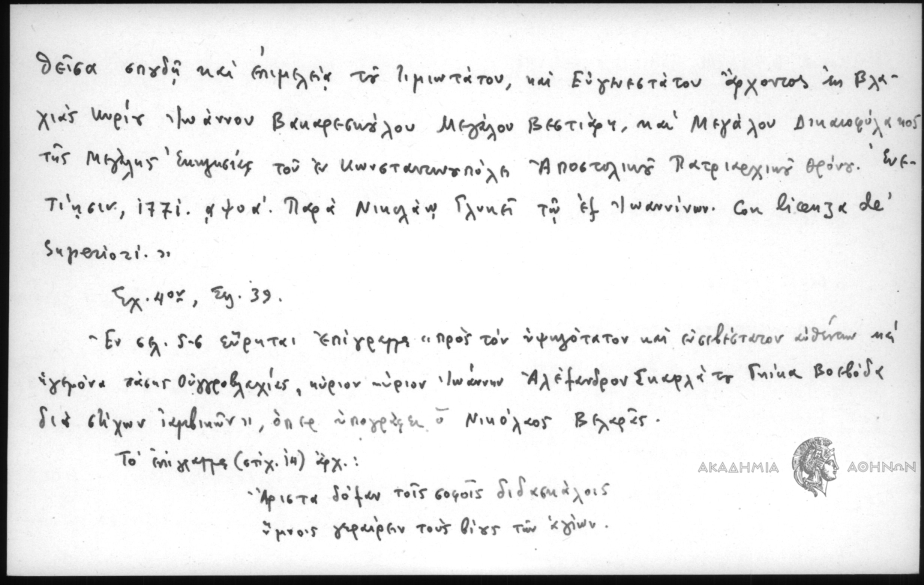 θεῖσα σπουδῇ καὶ ἐπιμελείᾳ τοῦ Τιμιωτάτου, καὶ Εὐγενεστάτου ἄρχοντος ἐκ Βλα-
χίας Κυρίου Ἰωάννου Βακαρεσκούλου Μεγάλου Βεστιάρη, καὶ Μεγάλου Δικαιοφύλακος
τῆς Μεγάλης Ἐκκλησίας τοῦ ἐν Κωνσταντινουπόλει Ἀποστολικοῦ Πατριαρχικοῦ Θρόνου. Ἐνε-
τίῃσιν, 1771. ͵αψοα΄. Παρὰ Νικολάῳ Γλυκεῖ τῷ ἐξ Ἰωαννίνων. Con licenza de'
Superiori.»
Σχ. 4ον, Σελ. 39.
Ἐν σελ. 5-6 εὕρηται ἐπίγραμμα «πρὸς τὸν ὑψηλότατον καὶ εὐσεβέστατον αὐθέντην καὶ
ἡγεμόνα πάσης Οὑγγροβλαχίας, κύριον κύριον Ἰωάννην Ἀλέξανδρον Σκαρλάτου Γκίκα Βοεβόδα
διὰ στίχων ἰαμβικῶν», ὅπερ ὑπογράφει ὁ Νικόλαος Βελαρᾶς.
Τὸ ἐπίγραμμα (στίχ. 14) ἄρχ.:
Ἄριστα δόξαν τοῖς σοφοῖς διδασκάλοις
ὕμνοις γεραίρειν τοὺς βίους τῶν ἁγίων.
ΑΚΑΔΗΜΙΑ ΑΘΗΝΩΝ